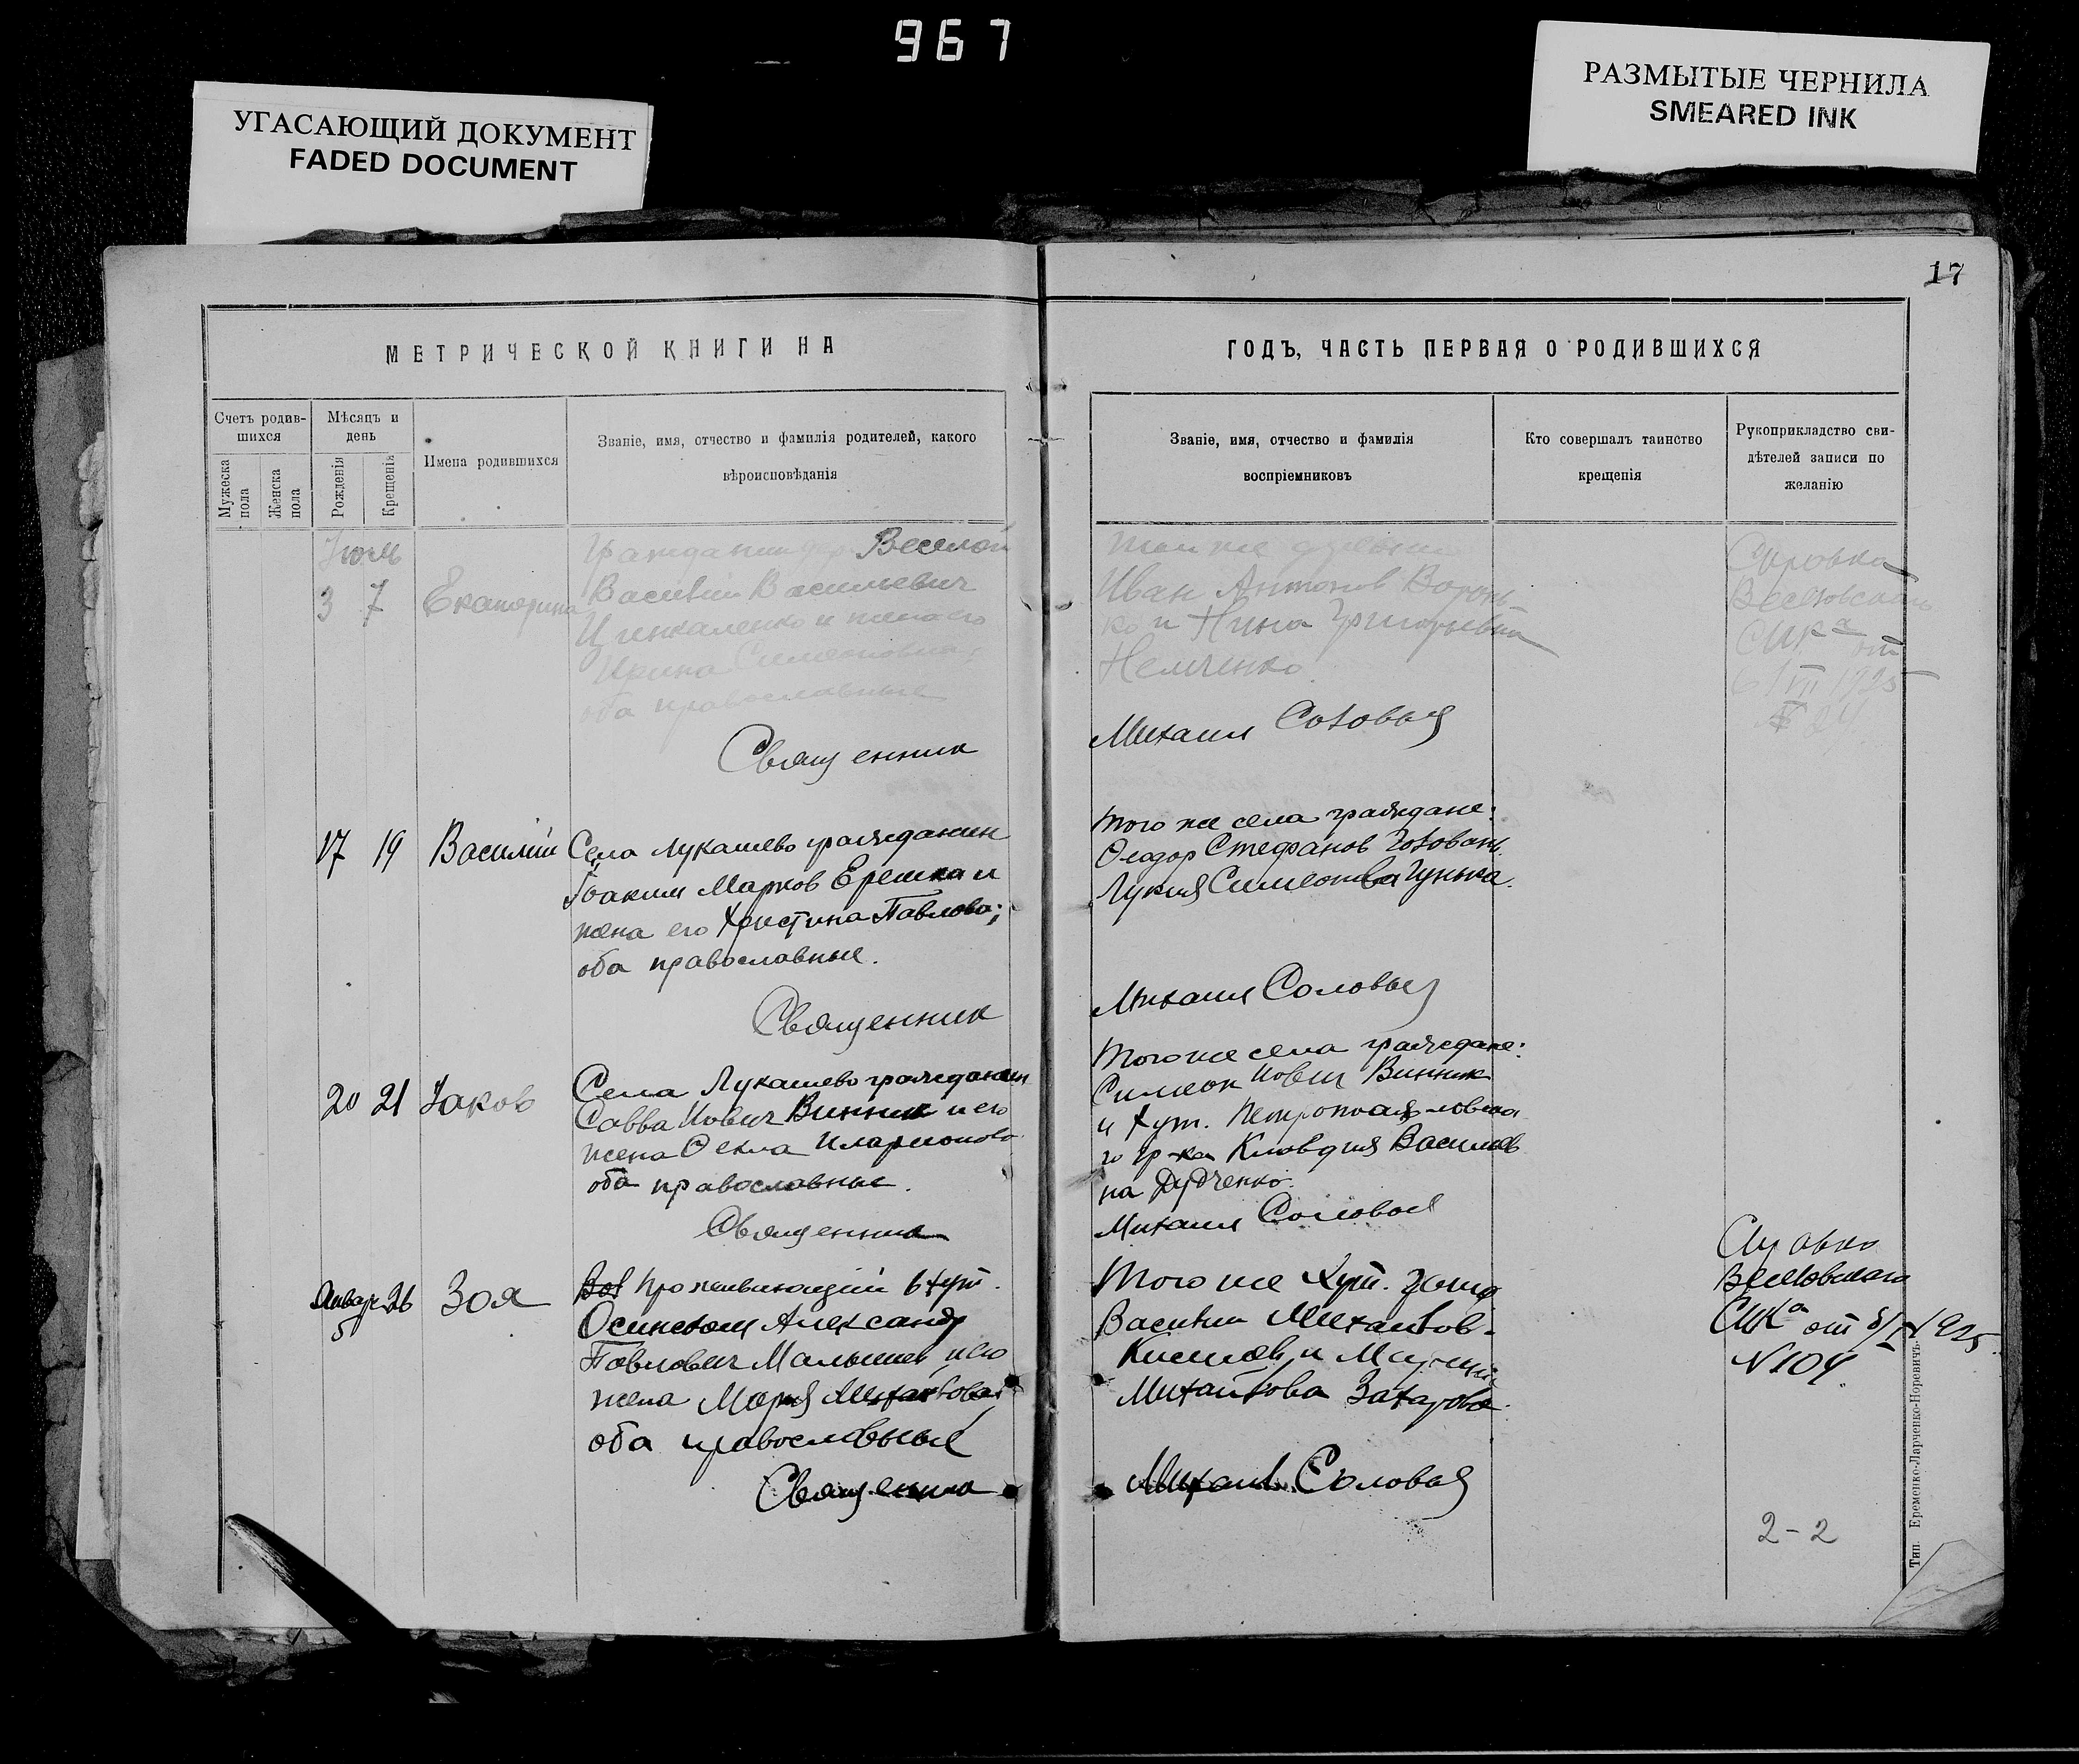 967
УГАСАЮЩИЙ ДОКУМЕНТ
FADED DOCUMENT
РАЗМЫТЫЕ ЧЕРНИЛА
SMEARED INK
17
МЕТРИЧЕСКОЙ КНИГИ НА
ГОДЪ, ЧАСТЬ ПЕРВАЯ О РОДИВШИХСЯ
Счетъ родив-
шихся
Мужеска
пола
Женска
пола
Мѣсяцъ и
день
Рожденія
Крещенія
Имена родившихся
Званіе, имя, отчество и фамилія родителей, какого
вѣроисповѣданія
Званіе, имя, отчество и фамилія
воспріемниковъ
Кто совершалъ таинство
крещенія
Рукоприкладство сви-
дѣтелей записи по
желанію
Июль
3 7 Екатерина
Гражданин дер. Веселой
Василий Васильевич
и жена его
Ирина Симеоновна,
оба православные
Священник
той же деревни
Иван Антонов Воронь-
ко и Нина Григорьевна
Немченко.
Михаил Соловья
Справка
от
6/VII 1925
№ 24
17 19 Василий
Села Лукашево гражданин
Іоаким Марков Ерешка и
жена его Христина Павлова;
оба православные.
Священник
того же села граждане:
Феодор Стефанов
Лукия Симеонова Гунька.
Михаил Соловья
20 21 Іаков
Села Лукашево гражданин
Савва Иович Винник и его
жена Фекла Иларионова
оба православные.
Священник
Того же села граждане:
Симеон Иович Винник
и хут. Петропавловско
го гр-ка Клавдия Василиев
на Дудченко.
Михаил Соловья
Январ 26 Зоя
5
Проживающий в хут.
Александр
Павлович Малышев и его
жена Мария Михайлова
оба православные
Священник
Того же хут. гр-не
Василий Михайлов.
и
Михайлова Захарова.
Михаил Соловья
Справка
от 8/I 1925
N 104
2-2
Тип. Еременко-Ларченко-Норевичъ